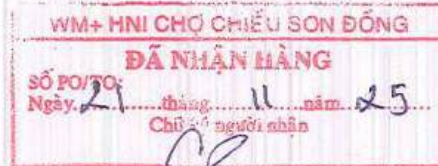 WM+ HNI CHỢ CHIỀU SƠN ĐỒNG
ĐÃ NHẬN HÀNG
SỐ PO/TO:
Ngày 21 tháng 11 năm 25
Chữ ký người nhận